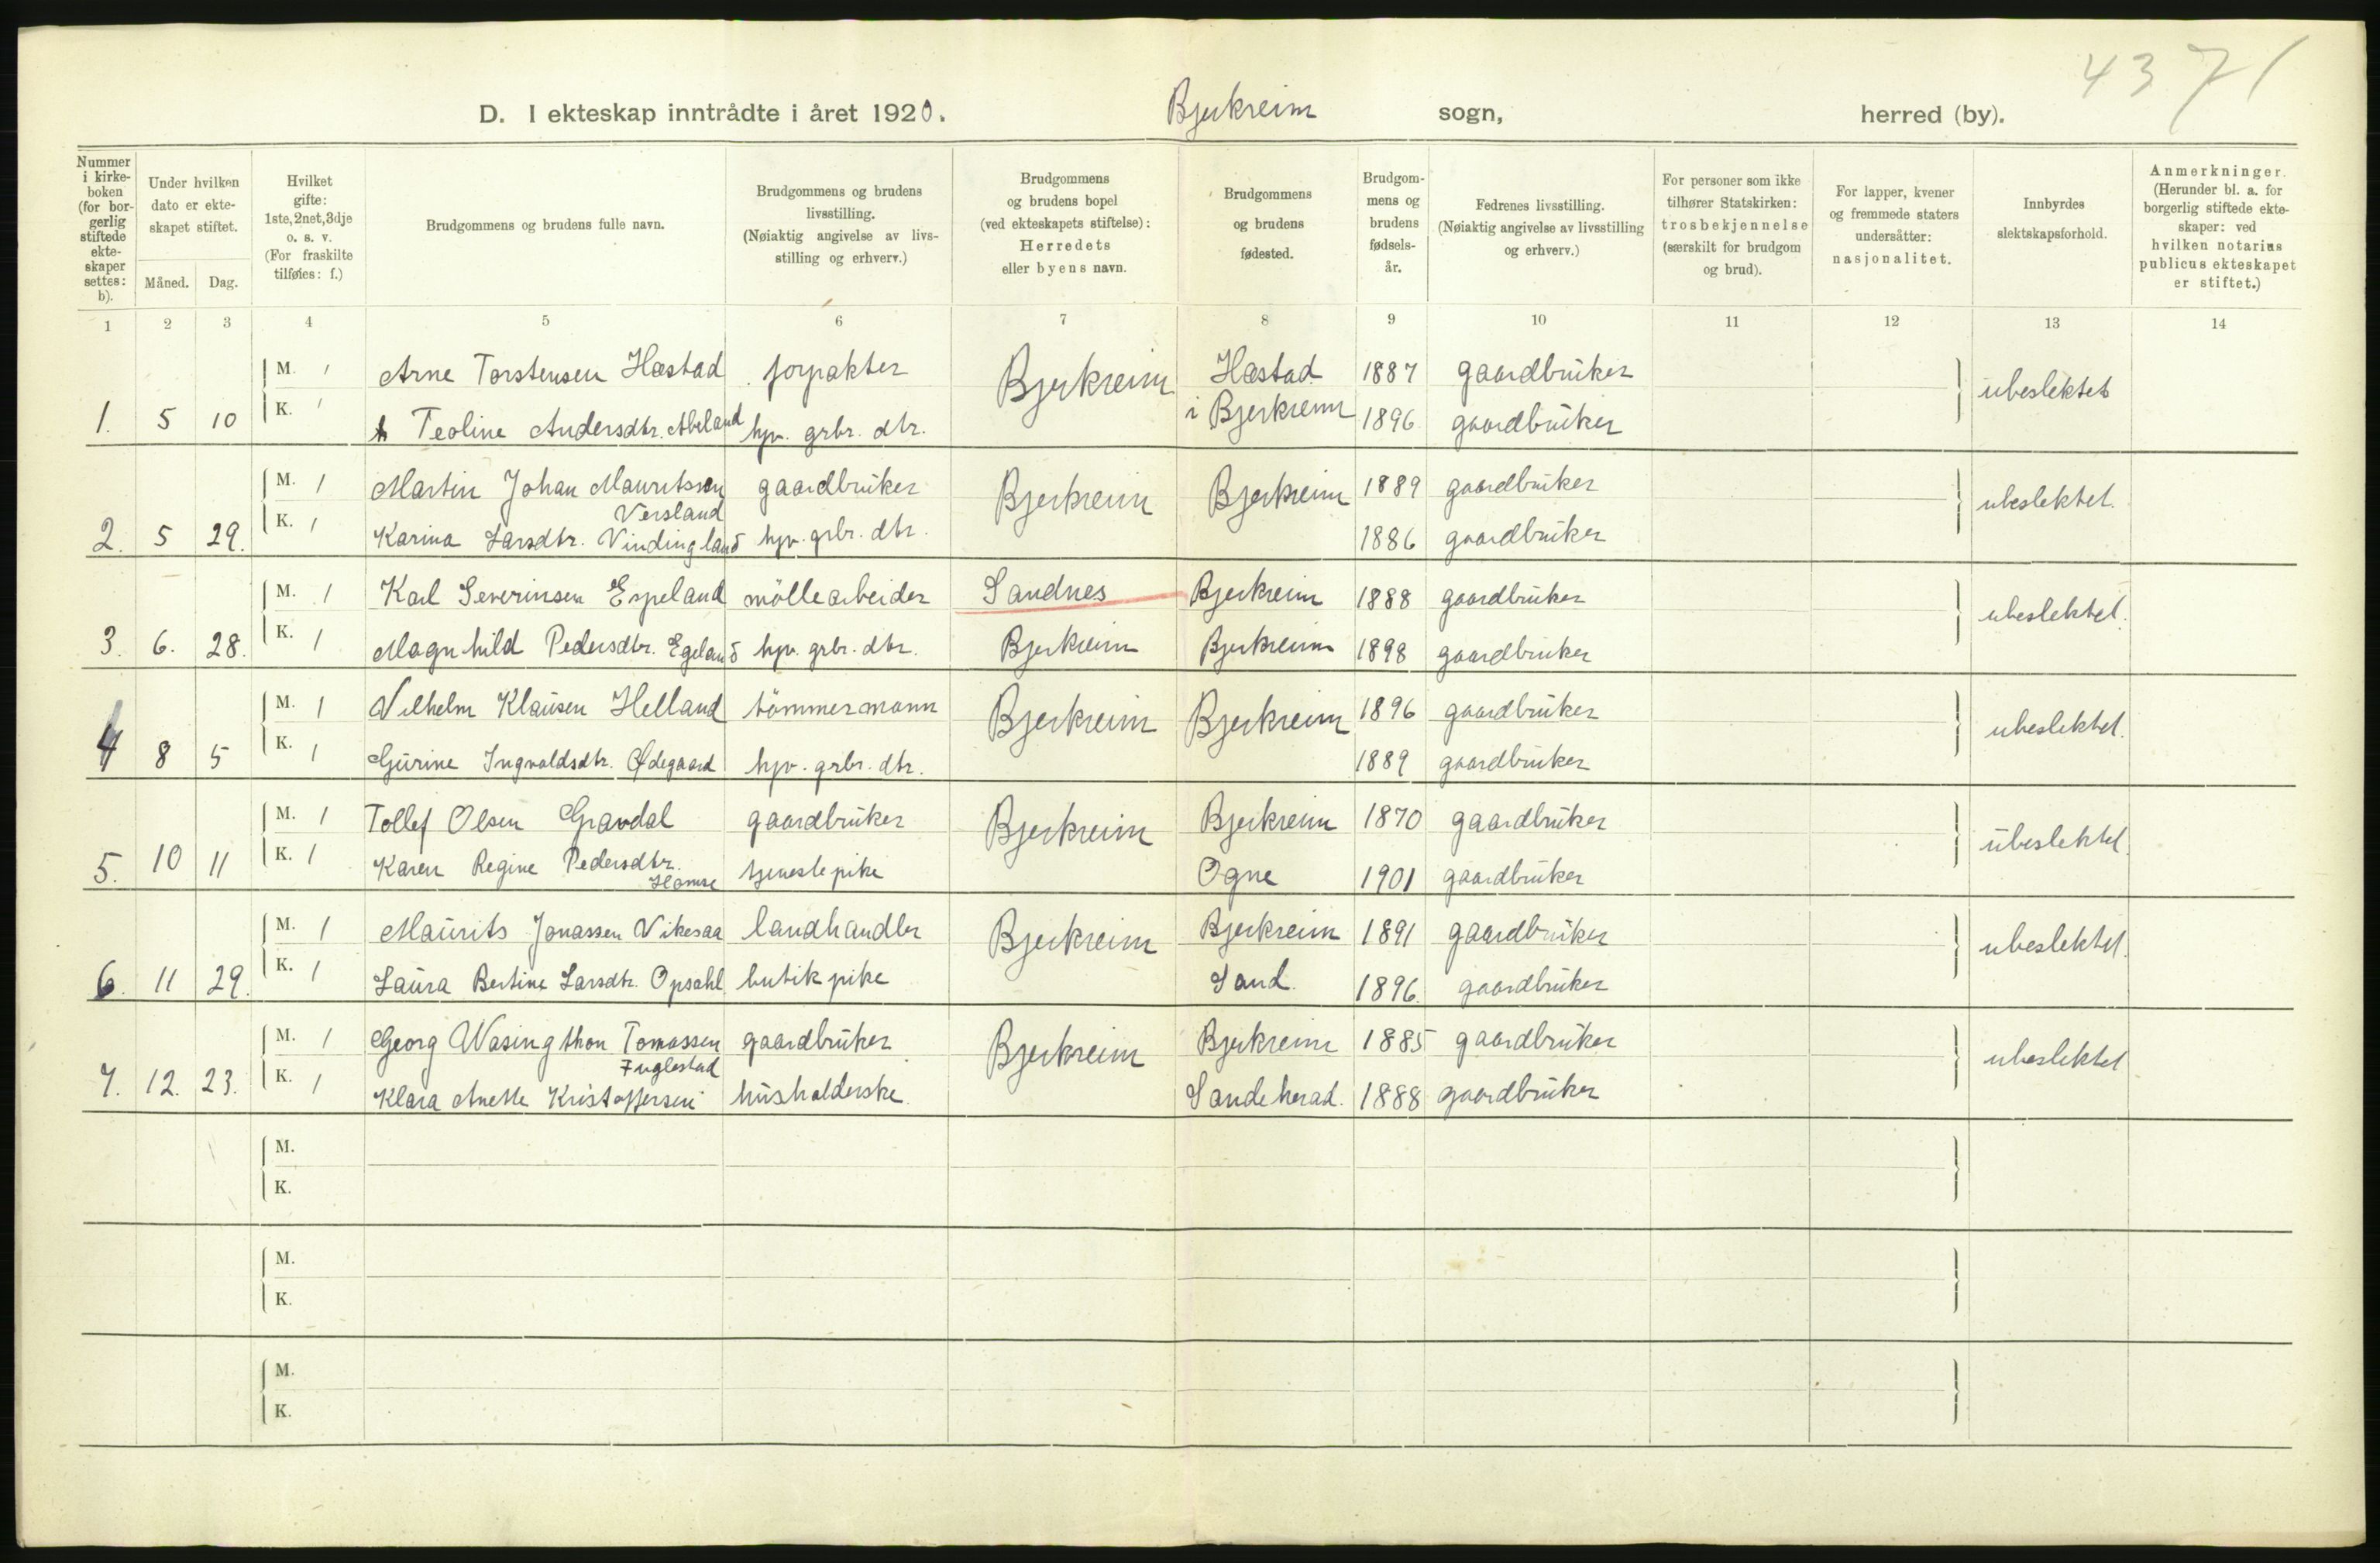 4371
D. I ekteskap inntrådte i året 1920. Bjerkreim sogn, herred (by).
Nummer i kirke-boken (for bor-gerlig stiftede ekte-skaper settes: b).
Under hvilken dato er ekte-skapet stiftet.
Måned. Dag.
Hvilket gifte: 1ste, 2net, 3dje o. s. v. (For fraskilte tilføies: f.)
Brudgommens og brudens fulle navn.
Brudgommens og brudens livsstilling. (Nøiaktig angivelse av livs-stilling og erhverv.)
Brudgommens og brudens bopel (ved ekteskapets stiftelse): Herredets eller byens navn.
Brudgommens og brudens fødested.
Brudgom-mens og brudens fødsels-år.
Fedrenes livsstilling. (Nøiaktig angivelse av livsstilling og erhverv.)
For personer som ikke tilhører Statskirken: trosbekjennelse (særskilt for brudgom og brud).
For lapper, kvener og fremmede staters undersåtter: nasjonalitet.
Innbyrdes slektskapsforhold.
Anmerkninger. (Herunder bl. a. for borgerlig stiftede ekte-skaper: ved hvilken notarius publicus ekteskapet er stiftet.)
1 2 3 4 5 6 7 8 9 10 11 12 13 14
M. 1 Arne Torstensen Hæstad forpakter Bjerkreim Hæstad 1887 gaardbruker ubeslektet
1. 5 10 K. 1 Teoline Andersdtr. Abeland hjv. grbr. dtr. i Bjerkreim 1896 gaardbruker
M. 1 Martin Johan Mauritssen gaardbruker Bjerkreim Bjerkreim 1889 gaardbruker ubeslektet.
Versland
2. 5 29. K. 1 Karina Larsdtr. Vindingland hjv. grbr. dtr. 1886 gaardbruker
M. 1 Karl Severinsen Espeland möllearbeider Sandnes Bjerkreim 1888 gaardbruker ubeslektet.
3. 6. 28. K. 1 Magnhild Pedersdtr. Egeland hjv. grbr. dtr. Bjerkreim Bjerkreim 1898 gaardbruker
M. 1 Vilhelm Klausen Helland tömmermann Bjerkreim Bjerkreim 1896 gaardbruker ubeslektet.
4 8 5 K. 1 Gurine Ingvaldsdtr. Ødegaard hjv. grbr. dtr. 1889 gaardbruker
M. 1 Tollef Olsen Gravdal gaardbruker Bjerkreim Bjerkreim 1870 gaardbruker ubeslektet.
5. 10 11 K. 1 Karen Regine Pedersdtr. tjenestepike Ogne 1901 gaardbruker
Homse
M. 1 Maurits Jonassen Vikesaa landhandler Bjerkreim Bjerkreim 1891 gaardbruker ubeslektet.
6. 11 29. K. 1 Laura Bertine Larsdtr. Opsahl butikpike Sand. 1896. gaardbruker
M. 1 Georg Wasingthon Tomassen gaardbruker Bjerkreim Bjerkreim 1885 gaardbruker ubeslektet
Fuglestad
7. 12. 23. K. 1 Klara Anette Kristoffersen husholderske. Sandeherad. 1888 gaardbruker
M.
K.
M.
K.
M.
K.